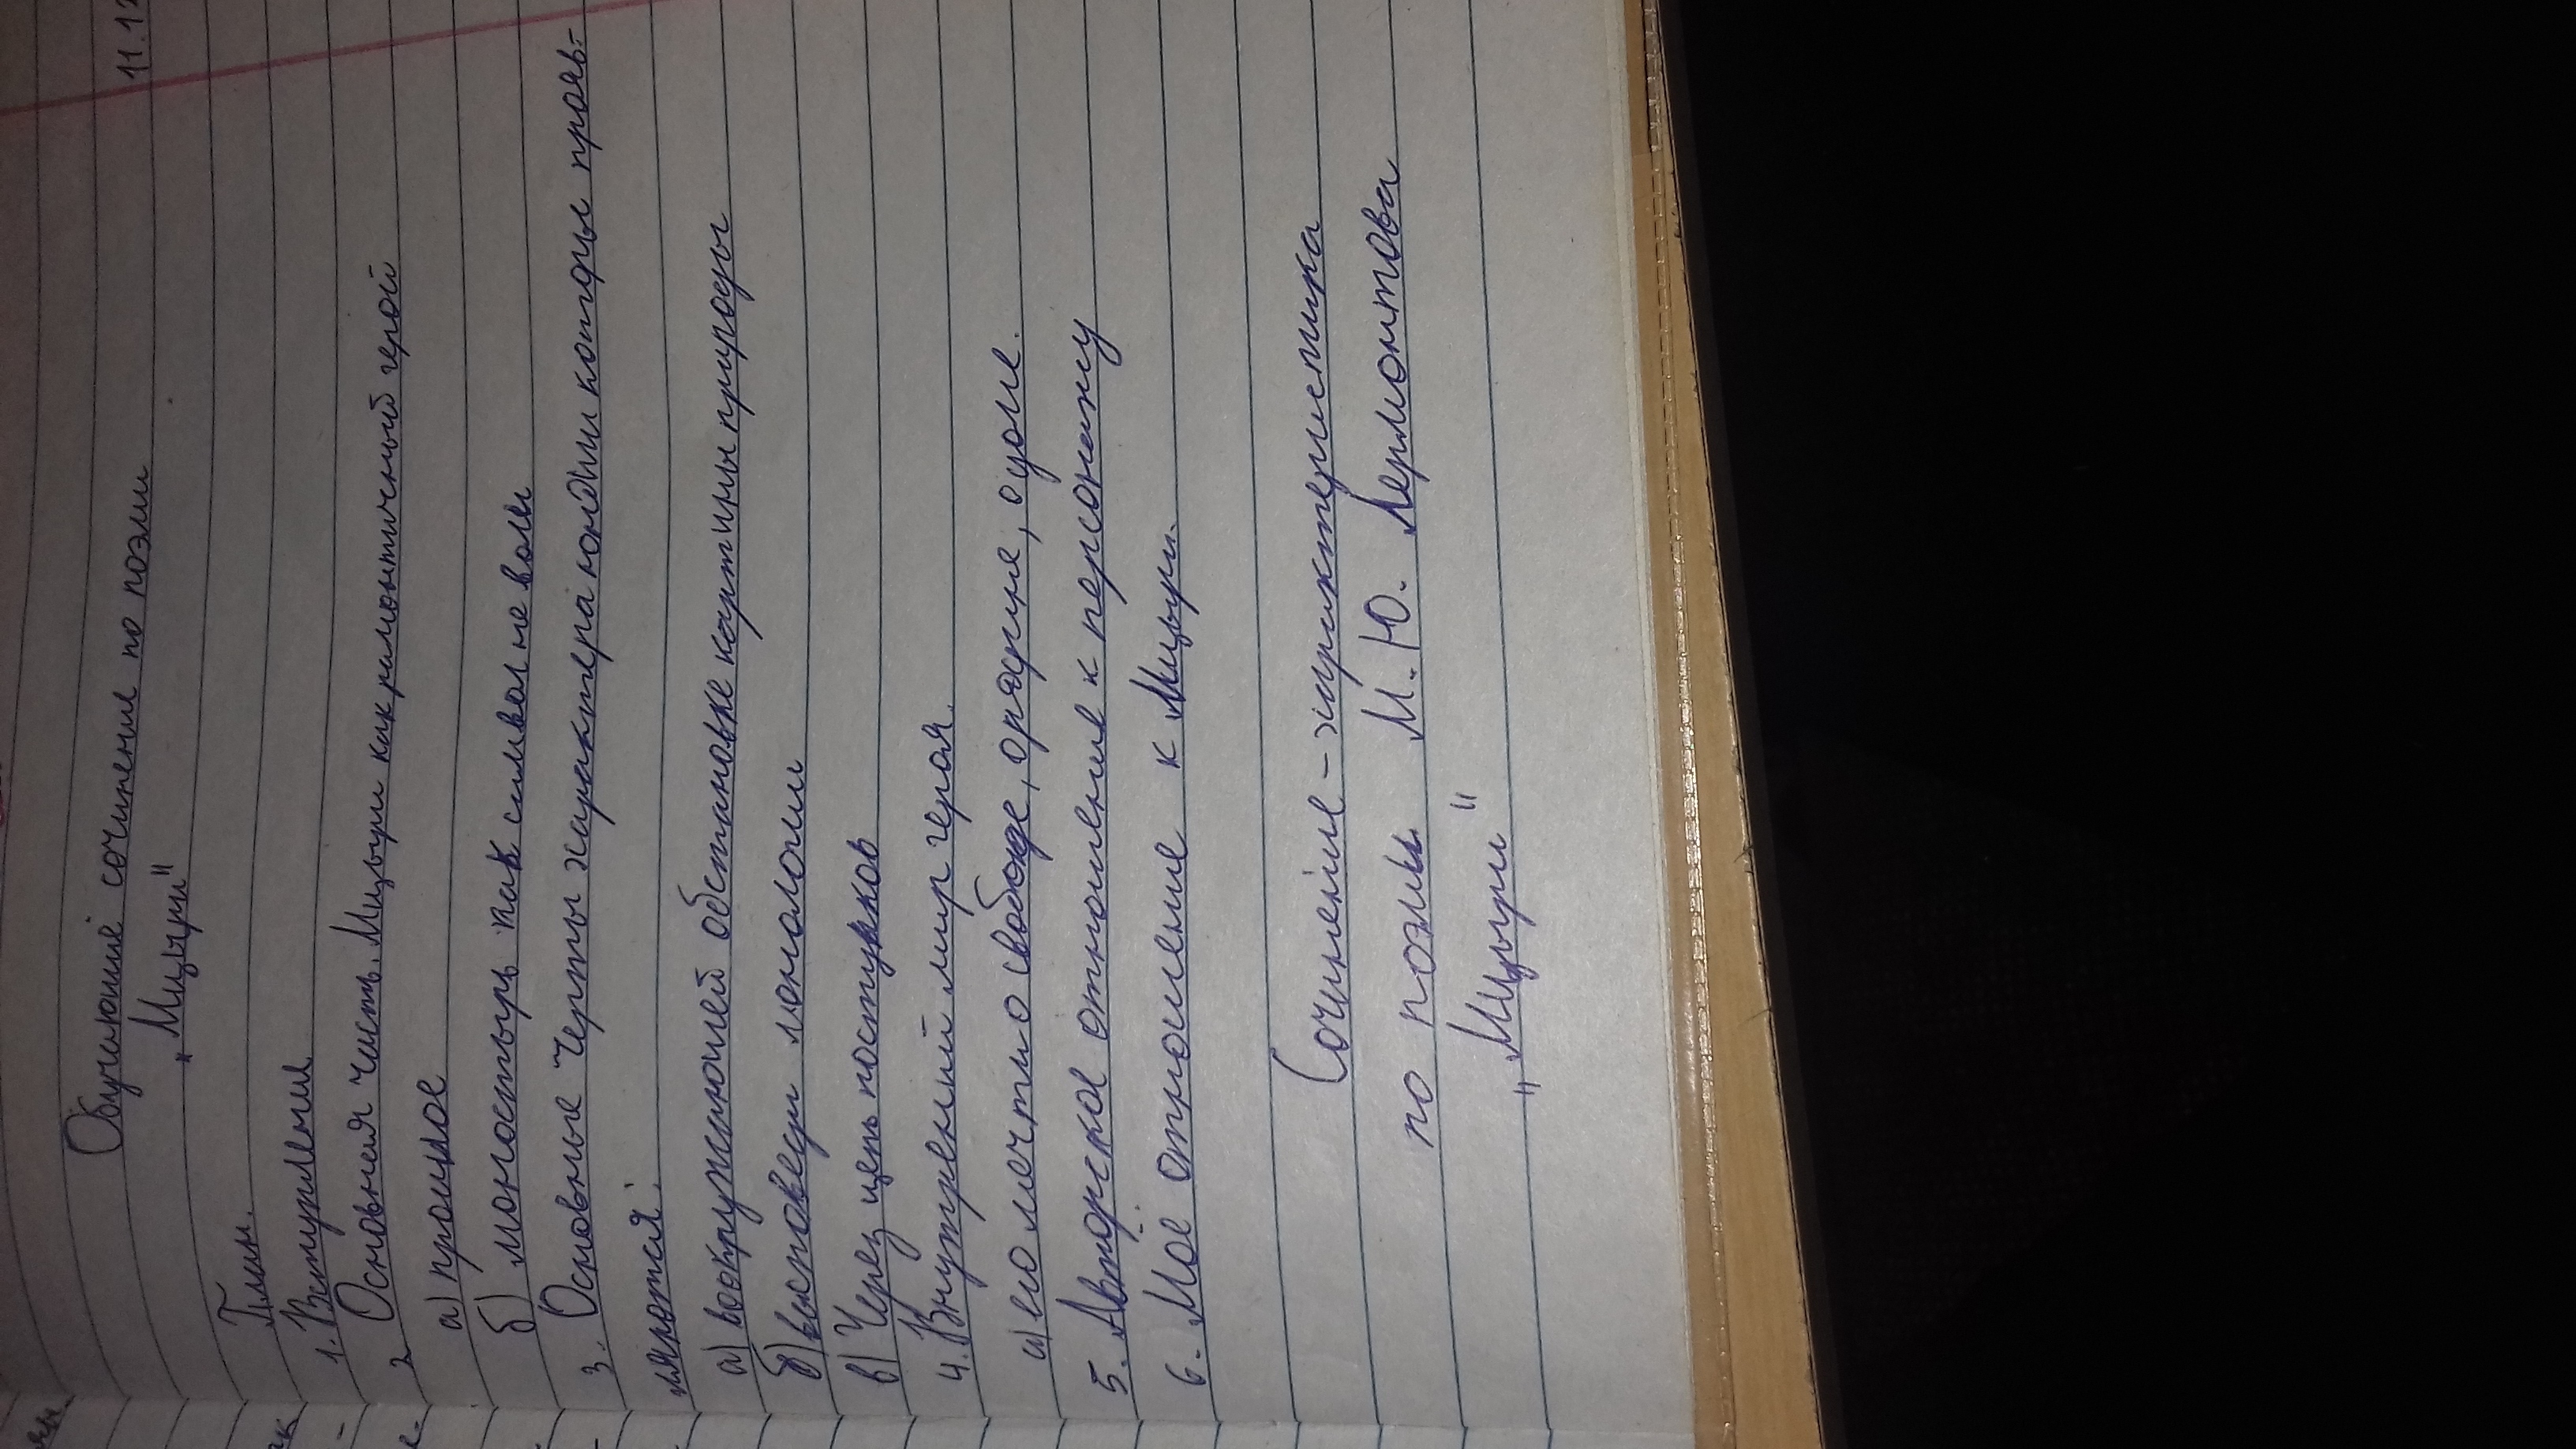 11.12
Обучающие сочинение по поэми
„Мцыри"
План.
1. Вступление
2 Основная часть. Мцыри как романтичный герой
а) прошлое
б) монастырь как символ не воли
3. Основные черты характера юноши которые прояв-
ляются.
а) в окружающей обстановке картины природы
б) в исповеди монологи
в) Через цепь поступков
4. Внутренний мир героя.
а) его мечты о свободе, о родине, о доме.
5. Авторское отношение к персонажу
6. Моё отношение к Мцыри.
Сочинение - характеристика
по поэмы М. Ю. Лермонтова
„Мцыри"